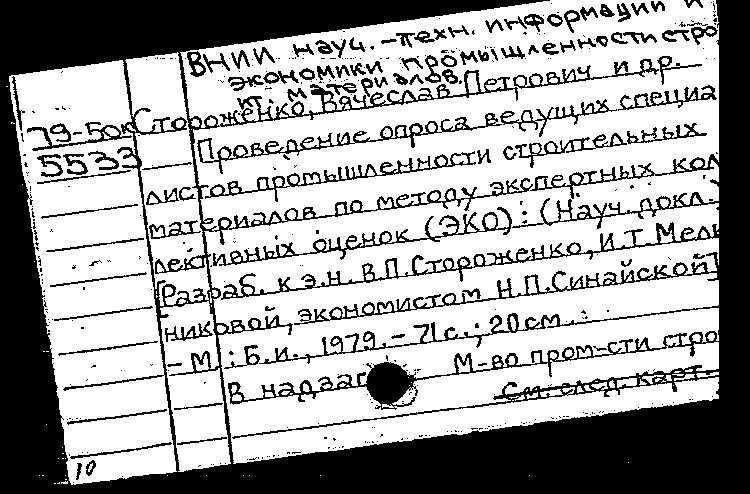 ВНИИ науч.-техн. информации и
экономики промышленности стро
ит. материалов.
79-50к Стороженко, Вячеслав Петрович и др.
5533 Проведение опроса ведущих специа
листов промышленности строительных
материалов по методу экспертных кол
лективных оценок (ЭКО): (Науч. докл.)
[Разраб. к.э.н. В.П.Стороженко, И.Т.Мель
никовой, экономистом Н.П.Синайской]
- М.: Б.и., 1979.- 71с.; 20см.
В надзаг М-во пром-сти стро
См. след. карт.
10